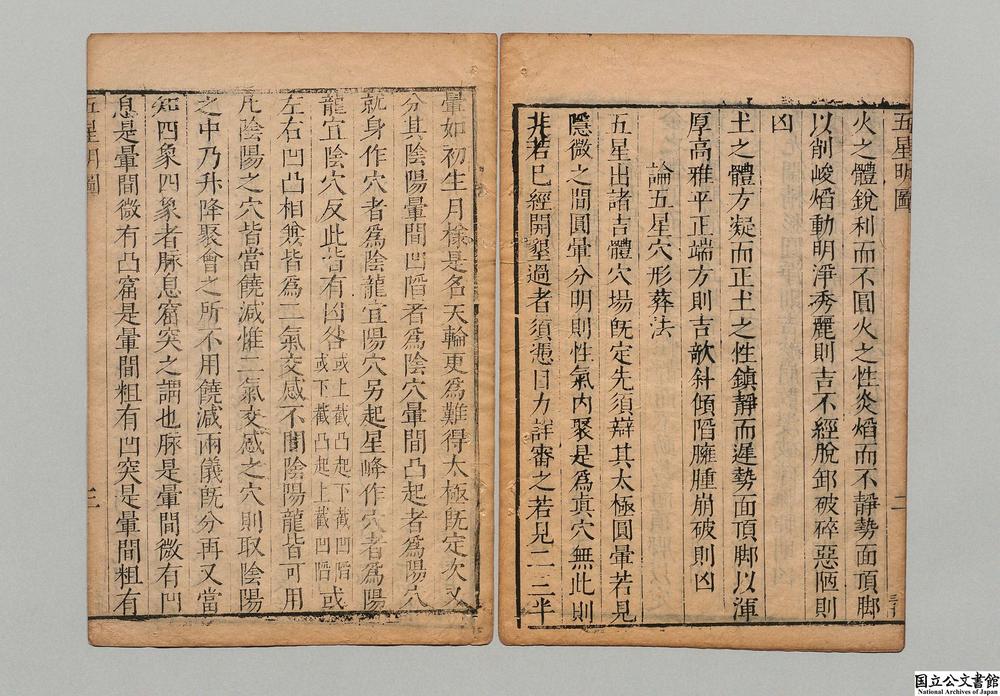 五星明圖
二
火之體銳利而不圓火之性炎熖而不靜勢面頂脚
以削峻熖動明淨秀麗則吉不經脫卸破碎惡陋則
凶
土之體方凝而正土之性鎮靜而遲勢面頂脚以渾
厚高雅平正端方則吉欹斜傾陷臃腫崩破則凶
論五星穴形葬法
五星出諸吉體穴場旣定先須辯其太極圓暈若見
隱微之間圓暈分明則性氣内聚是爲真穴無此則
非若已經開墾過者須憑目力詳審之若見二三半
暈如初生月樣是名天輪更爲難得太極旣定次又
分其陰陽暈間凹陷者爲陰穴暈間凸起者爲陽穴
就身作穴者爲陰龍宜陽穴另起星峰作穴者爲陽
龍宜陰穴反此皆有凶咎或上截凸起下截凹陷或
或下截凸起上截凹陷或
左右凹凸相兼皆爲二氣交感不問陰陽龍皆可用
凡陰陽之穴皆當饒減惟二氣交感之穴則取陰陽
之中乃升降聚會之所不用饒減兩儀旣分再又當
知四象四象者脉息窟突之謂也脉是暈間微有凹
息是暈間微有凸窟是暈間粗有凹突是暈間粗有
五星明圖
三
国立公文書館
National Archives of Japan